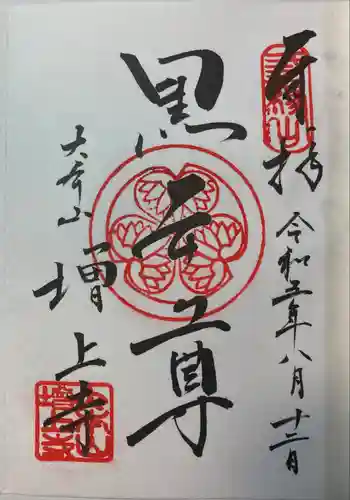 奉拝
令和五年八月十二日
黒本尊
大本山
増上寺
三縁山